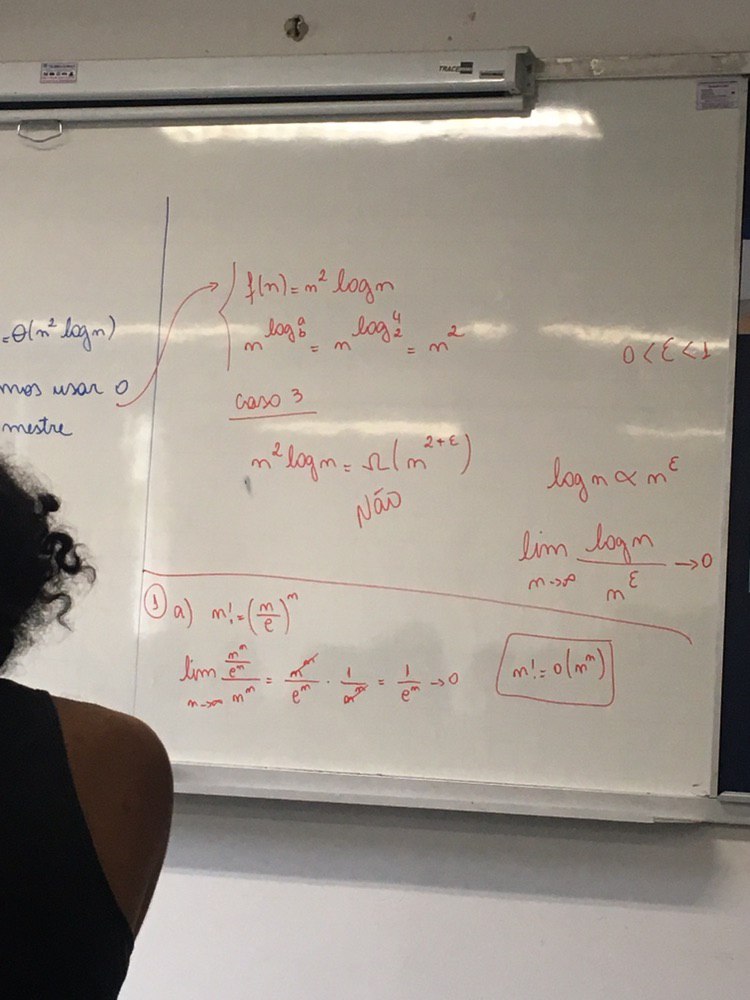 TRACE
=Θ(n² log n)
mos usar o
mestre
f(n) = n² log n
n^log_b^a = n^log_2^4 = n²
0 < ε < 1
caso 3
n² log n = Ω(n^2+ε)
NÃO
log n ∝ n^ε
lim n→∞ log n / n^ε → 0
① a) n! = (n/e)^n
lim n→∞ (n^n/e^n)/n^n = n^n/e^n · 1/n^n = 1/e^n → 0
n! = o(n^n)